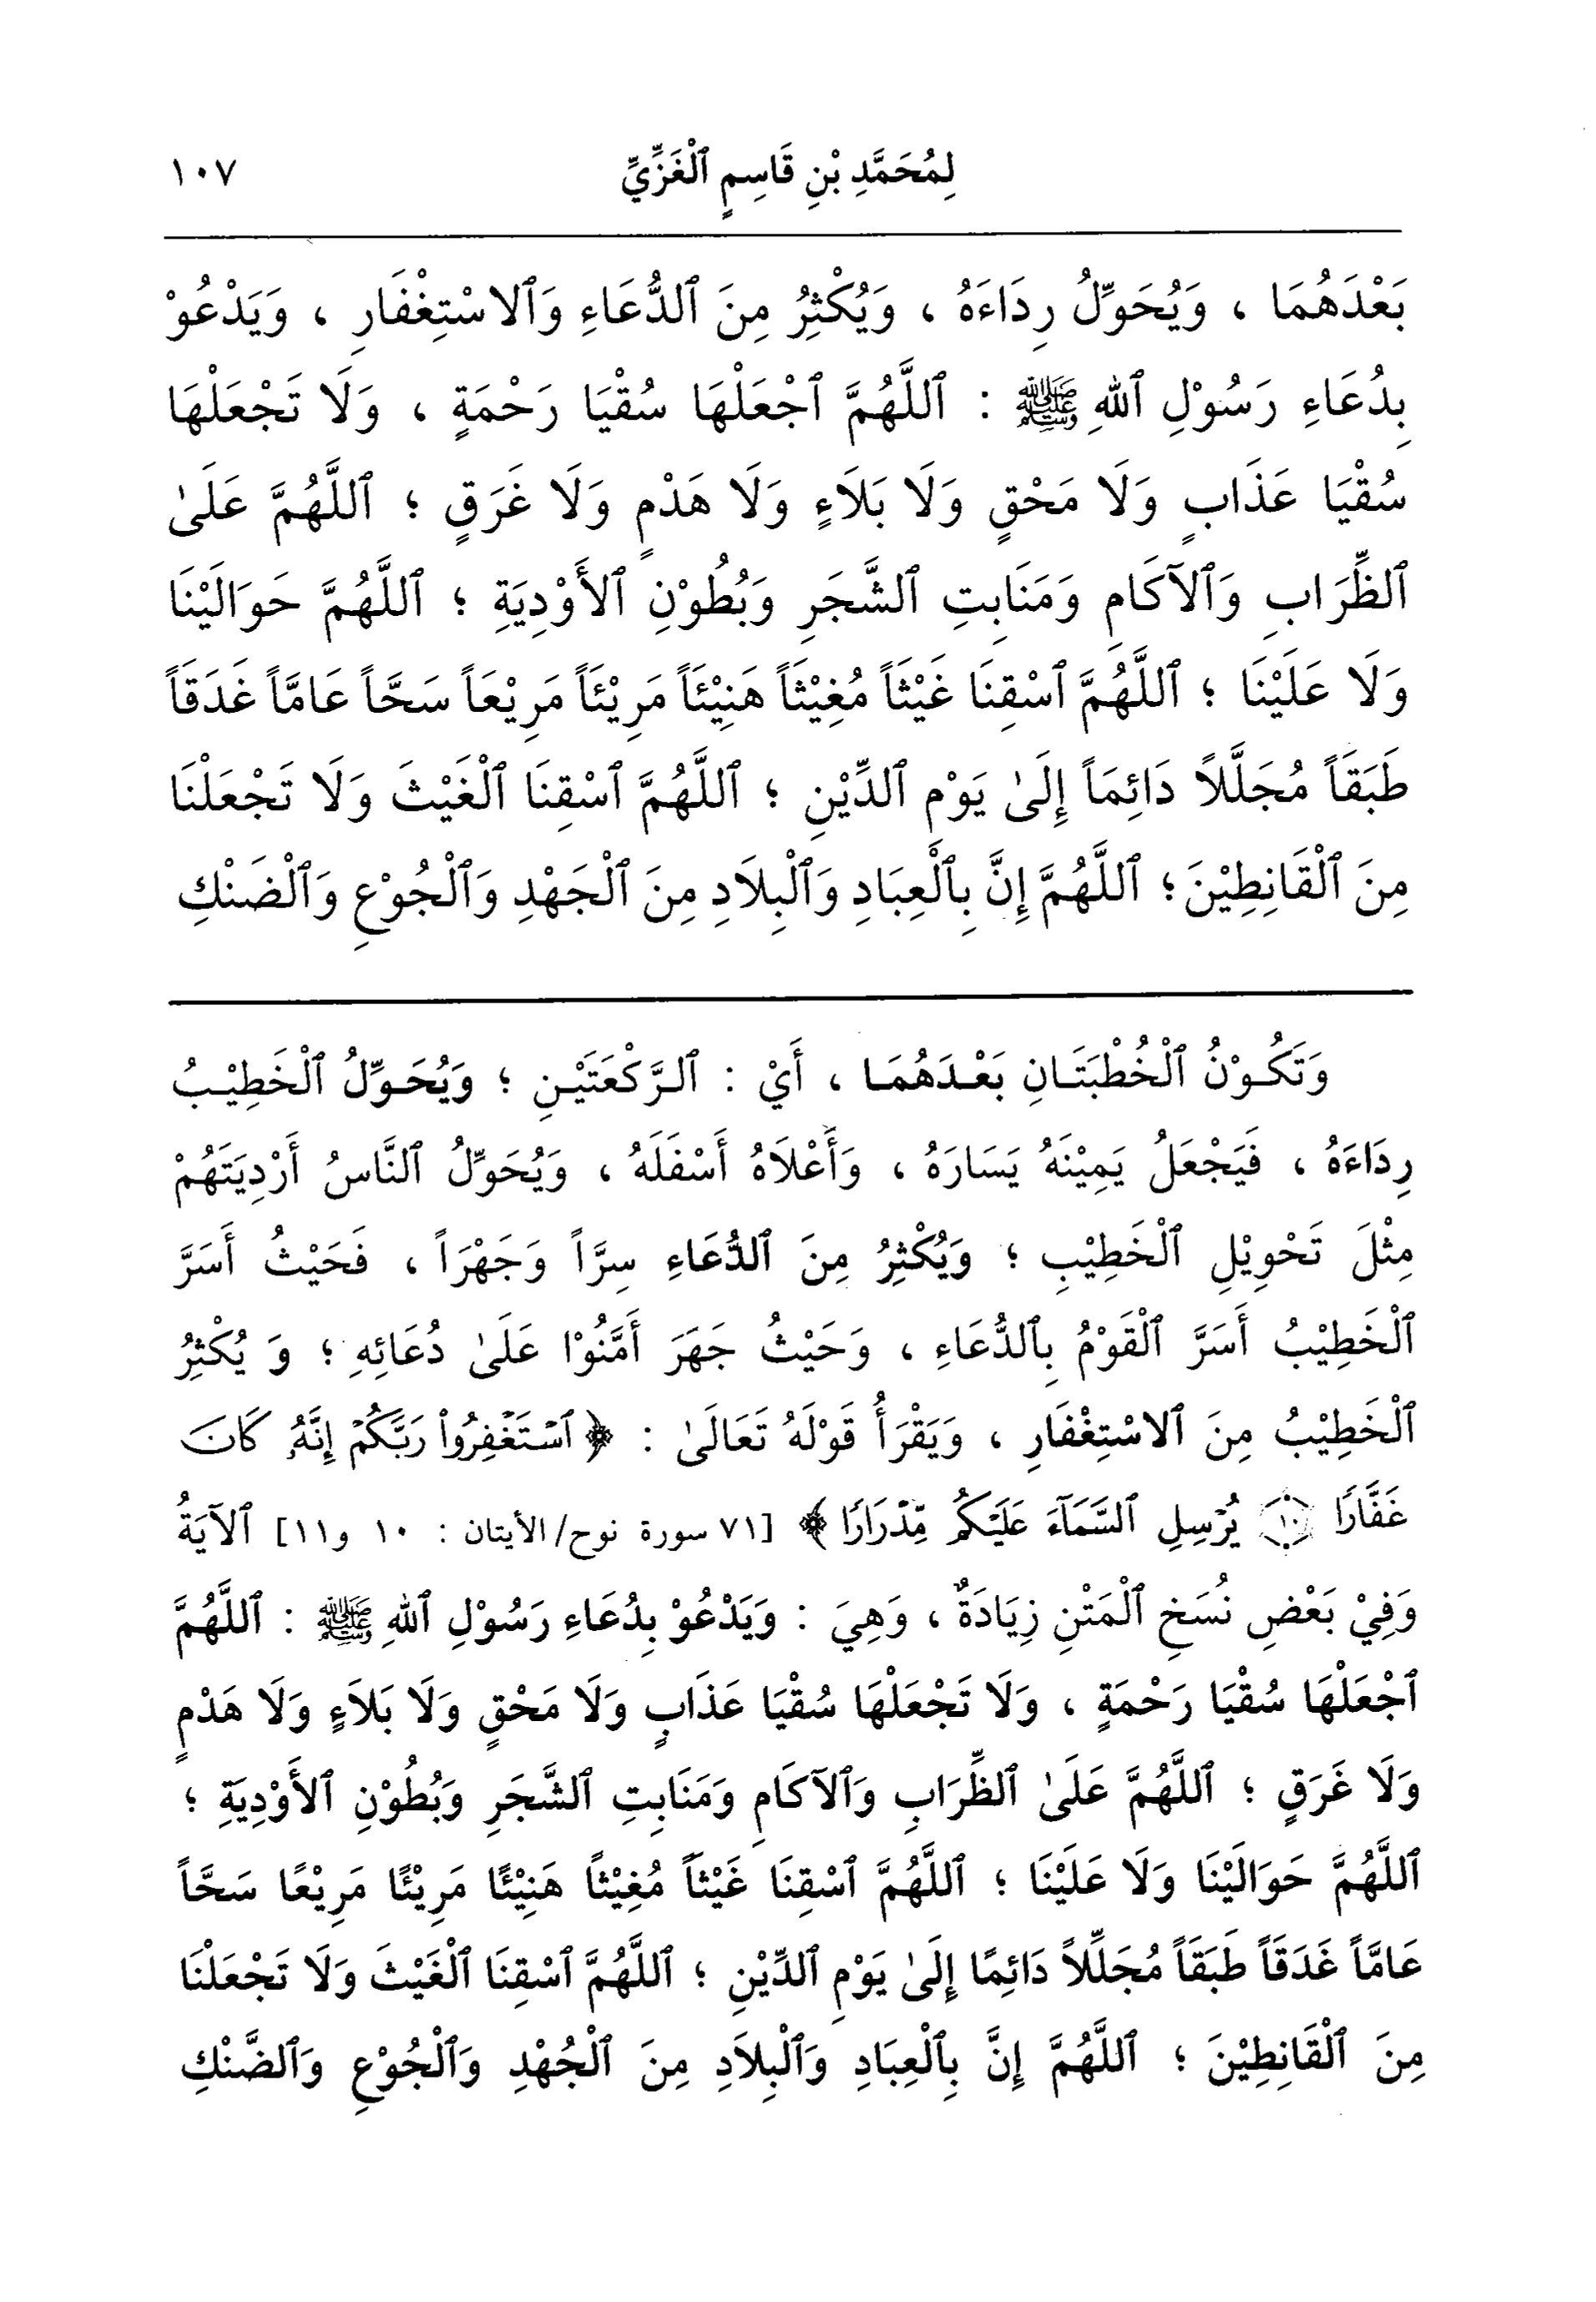 لِمُحَمَّدِ بْنِ قَاسِمٍ ٱلْغَزِّيِّ ١٠٧
بَعْدَهُمَا ، وَيُحَوِّلُ رِدَاءَهُ ، وَيُكْثِرُ مِنَ ٱلدُّعَاءِ وَٱلاسْتِغْفَارِ ، وَيَدْعُوْ
بِدُعَاءِ رَسُوْلِ ٱللهِ ﷺ : ٱللَّهُمَّ ٱجْعَلْهَا سُقْيَا رَحْمَةٍ ، وَلَا تَجْعَلْهَا
سُقْيَا عَذَابٍ وَلَا مَحْقٍ وَلَا بَلَاءٍ وَلَا هَدْمٍ وَلَا غَرَقٍ ؛ ٱللَّهُمَّ عَلَىٰ
ٱلظِّرَابِ وَٱلآكَامِ وَمَنَابِتِ ٱلشَّجَرِ وَبُطُوْنِ ٱلأَوْدِيَةِ ؛ ٱللَّهُمَّ حَوَالَيْنَا
وَلَا عَلَيْنَا ؛ ٱللَّهُمَّ ٱسْقِنَا غَيْثَاً مُغِيْثَاً هَنِيْئَاً مَرِيْئَاً مَرِيْعَاً سَحَّاً عَامَّاً غَدَقَاً
طَبَقَاً مُجَلَّلاً دَائِمَاً إِلَىٰ يَوْمِ ٱلدِّيْنِ ؛ ٱللَّهُمَّ ٱسْقِنَا ٱلْغَيْثَ وَلَا تَجْعَلْنَا
مِنَ ٱلْقَانِطِيْنَ ؛ ٱللَّهُمَّ إِنَّ بِٱلْعِبَادِ وَٱلْبِلَادِ مِنَ ٱلْجَهْدِ وَٱلْجُوْعِ وَٱلْضَنْكِ
وَتَكُوْنُ ٱلْخُطْبَتَانِ بَعْدَهُمَا ، أَيْ : ٱلرَّكْعَتَيْنِ ؛ وَيُحَوِّلُ ٱلْخَطِيْبُ
رِدَاءَهُ ، فَيَجْعَلُ يَمِيْنَهُ يَسَارَهُ ، وَأَعْلَاهُ أَسْفَلَهُ ، وَيُحَوِّلُ ٱلنَّاسُ أَرْدِيَتَهُمْ
مِثْلَ تَحْوِيْلِ ٱلْخَطِيْبِ ؛ وَيُكْثِرُ مِنَ ٱلدُّعَاءِ سِرَّاً وَجَهْرَاً ، فَحَيْثُ أَسَرَّ
ٱلْخَطِيْبُ أَسَرَّ ٱلْقَوْمُ بِٱلدُّعَاءِ ، وَحَيْثُ جَهَرَ أَمَّنُوْا عَلَىٰ دُعَائِهِ ؛ وَ يُكْثِرُ
ٱلْخَطِيْبُ مِنَ ٱلاسْتِغْفَارِ ، وَيَقْرَأُ قَوْلَهُ تَعَالَىٰ : ﴿ ٱسْتَغْفِرُوا۟ رَبَّكُمْ إِنَّهُۥ كَانَ
غَفَّارًا ١٠ يُرْسِلِ ٱلسَّمَآءَ عَلَيْكُم مِّدْرَارًا ﴾ [٧١ سورة نوح/الأيتان : ١٠ و١١] ٱلآيَةُ
وَفِيْ بَعْضِ نُسَخِ ٱلْمَتْنِ زِيَادَةٌ ، وَهِيَ : وَيَدْعُوْ بِدُعَاءِ رَسُوْلِ ٱللهِ ﷺ : ٱللَّهُمَّ
ٱجْعَلْهَا سُقْيَا رَحْمَةٍ ، وَلَا تَجْعَلْهَا سُقْيَا عَذَابٍ وَلَا مَحْقٍ وَلَا بَلَاءٍ وَلَا هَدْمٍ
وَلَا غَرَقٍ ؛ ٱللَّهُمَّ عَلَىٰ ٱلظِّرَابِ وَٱلآكَامِ وَمَنَابِتِ ٱلشَّجَرِ وَبُطُوْنِ ٱلأَوْدِيَةِ ؛
ٱللَّهُمَّ حَوَالَيْنَا وَلَا عَلَيْنَا ؛ ٱللَّهُمَّ ٱسْقِنَا غَيْثَاً مُغِيْثاً هَنِيْئًا مَرِيْئًا مَرِيْعًا سَحَّاً
عَامَّاً غَدَقَاً طَبَقَاً مُجَلِّلاً دَائِمًا إِلَىٰ يَوْمِ ٱلدِّيْنِ ؛ ٱللَّهُمَّ ٱسْقِنَا ٱلْغَيْثَ وَلَا تَجْعَلْنَا
مِنَ ٱلْقَانِطِيْنَ ؛ ٱللَّهُمَّ إِنَّ بِٱلْعِبَادِ وَٱلْبِلَادِ مِنَ ٱلْجُهْدِ وَٱلْجُوْعِ وَٱلضَّنْكِ